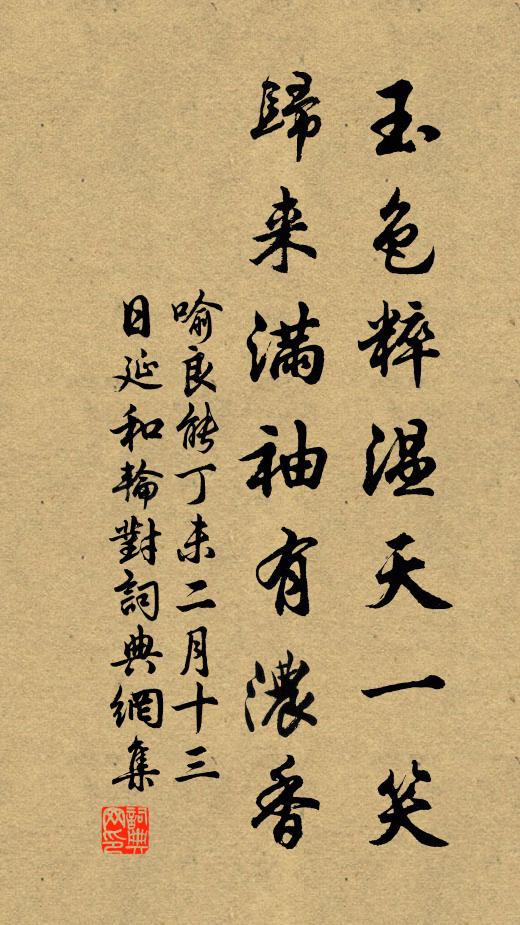 玉色粹温天一笑
歸来满袖有濃香
喻良能丁未二月十三
日延和輪對詞典網集
詞典
网印